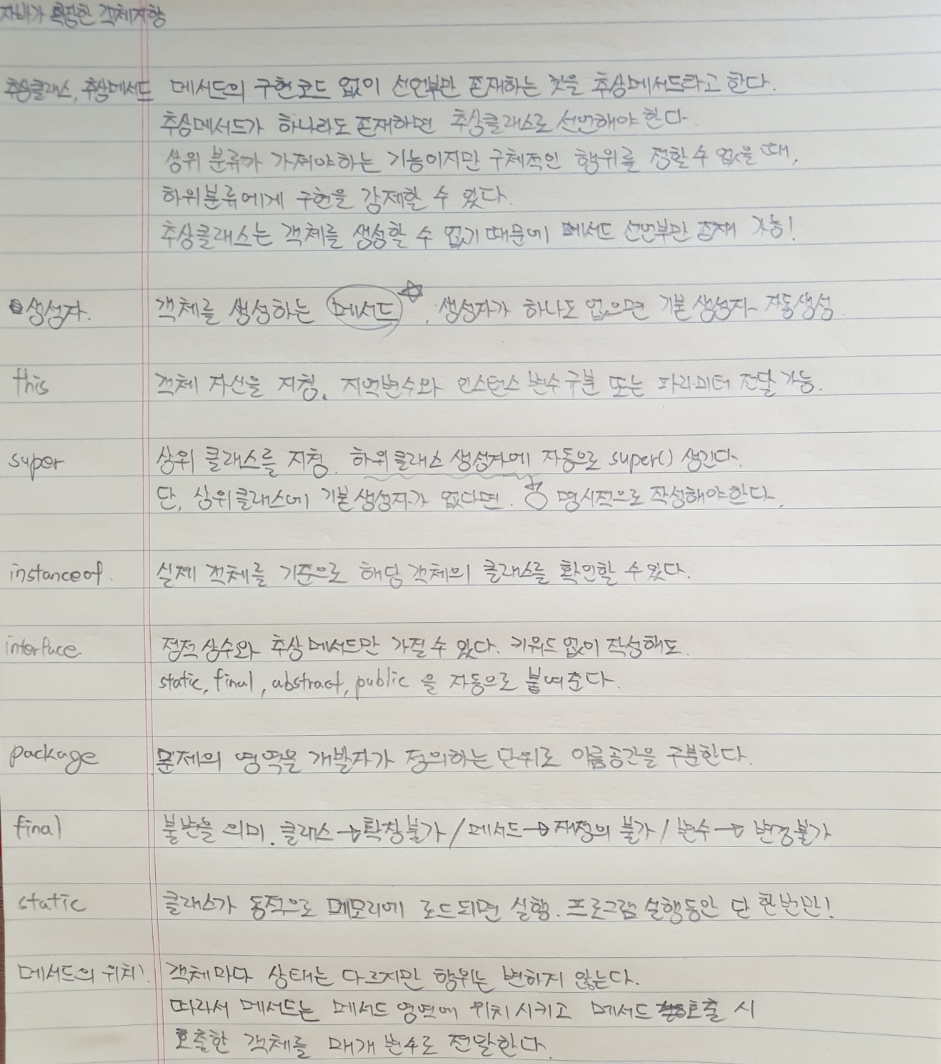 자바가 확장한 객체지향
추상클래스, 추상메서드 메서드의 구현코드 없이 선언부만 존재하는 것을 추상메서드라고 한다.
추상메서드가 하나라도 존재하면 추상클래스로 선언해야 한다.
상위 분류가 가져야하는 기능이지만 구체적인 행위를 정할 수 없을 때,
하위분류에게 구현을 강제할 수 있다.
추상클래스는 객체를 생성할 수 없기 때문에 메서드 선언부만 존재 가능!
생성자. 객체를 생성하는 메서드☆. 생성자가 하나도 없으면 기본 생성자 자동생성
this 객체 자신을 지칭. 지역변수와 인스턴스 변수 구분 또는 파라미터 전달 가능.
super 상위 클래스를 지칭. 하위클래스 생성자에 자동으로 super() 생긴다.
단, 상위클래스에 기본생성자가 없다면. 명시적으로 작성해야한다.
instanceof. 실제 객체를 기준으로 해당 객체의 클래스를 확인할 수 있다.
interface. 정적 상수와 추상 메서드만 가질 수 있다. 키워드 없이 작성해도
static, final, abstract, public 을 자동으로 붙여준다.
package 문제의 영역을 개발자가 정의하는 단위로 이름공간을 구분한다.
final 불변을 의미. 클래스→확장불가 / 메서드→재정의 불가 / 변수→변경불가
static 클래스가 동적으로 메모리에 로드되면 실행. 프로그램 실행동안 단 한번만!
메서드의 위치! 객체마다 상태는 다르지만 행위는 변하지 않는다.
따라서 메서드는 메서드 영역에 위치시키고 메서드 호출 시
호출한 객체를 매개 변수로 전달한다.